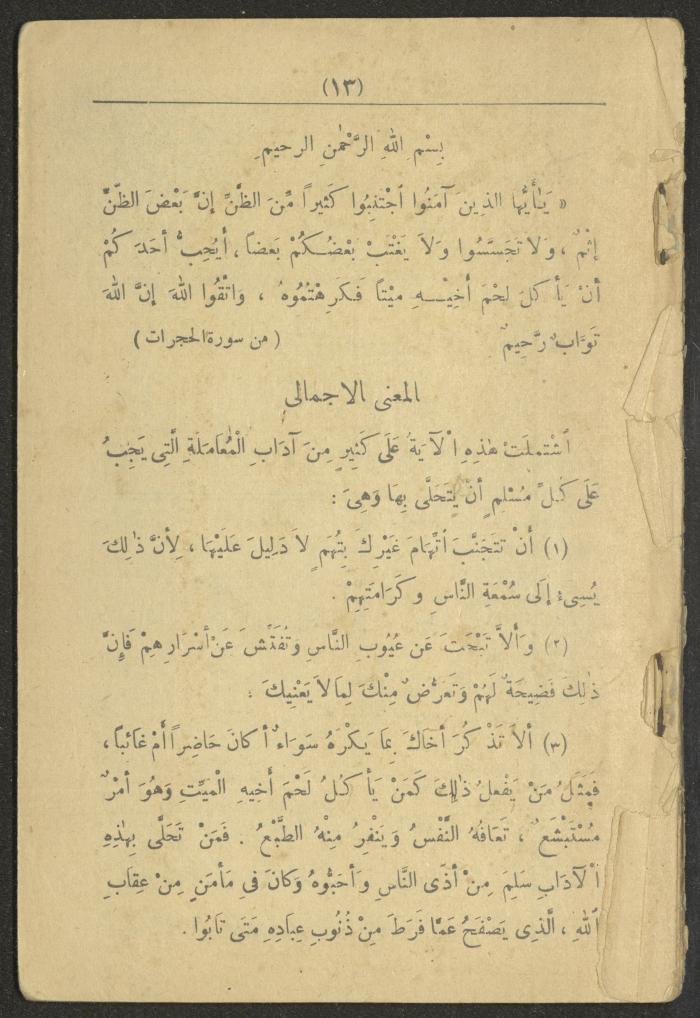 (١٣)
بِسْمِ اللهِ الرَّحْمٰنِ الرحيمِ
« يَـٰأَيُّها الذِينَ آمَنُوا اُجْتَنِبُوا كَثيراً مِّنَ الظَّنِّ إنَّ بَعْضَ الظَّنِّ
إثْمٌ ، وَلا تَجَسَّسُوا وَلاَ يَغْتَبْ بَعْضُـكُمْ بَعضاً ، أَيُحِبُّ أَحَدَكُمْ
أنْ يَأكلَ لَحْمَ أخِيْـهِ ميْتاً فَكَرِهْتُمُوهُ ، وَاتْقُوا اللهَ إنَّ اللهَ
تَوَّابٌ رَّحِيمٌ ( من سورة الحجرات )
المعنى الاجمالى
اُشْتملَتْ هٰذِهِ الْآيَةُ عَلَى كَثِيرٍ مِنَ آدَابِ الْمُعَامَلَةِ الَّتِى يَجِبُ
عَلَى كُلِّ مُسْلمٍ أنْ يَتَحَلَّى بِهَا وَهِىَ :
(١) أَنْ تَتَجَنَّبَ اُتِّهَامَ غَيْرِكَ بِتُهَمٍ لاَ دَلِيلَ عَلَيْهَا ، لِأَنَّ ذٰلِكَ
يُسِىءُ إلَى سُمْعَةِ النَّاسِ وكَرَامَتِهِمْ .
(٢) وَأَلاَّ تَبْحَثَ عَن عُيُوبِ النَّاسِ وَتُفَتِّشَ عَنْ أَسْرَارِهِمْ فَإِنَّ
ذٰلِكَ فَضِيحَةٌ لَهُمْ وَتَعَرُّضٌ مِنْكَ لِمَا لاَ يَعْنِيكَ .
(٣) ألاَّ تَذْكُرَ أخَاكَ بِمَا يَكْرَهُ سَوَاءٌ أكانَ حَاضِراً أمْ غَائباً ،
فَمَثَلُ مَنْ يَفْعلُ ذٰلِكَ كَمَنْ يَأكُلُ لَحْمَ أخِيهِ الْمَيِّتِ وَهُوَ أمْرٌ
مُسْتَبْشَعٌ ، تَعَافُهُ النَّفْسُ وَيَنْفِرُ مِنْهُ الطَّبْعُ . فَمَنْ تَحَلَّى بِهٰذِهِ
الْآدَابِ سَلِمَ مِنْ أذَى النَّاسِ وَأَحَبُّوهُ وَكانَ فِى مَأمَنٍ مِنْ عِقَابِ
اُللهِ ، الَّذِى يَصْفَحُ عَمَّا فَرَطَ مِنْ ذُنُوبِ عِبَادِهِ مَتَى تَابُوا .